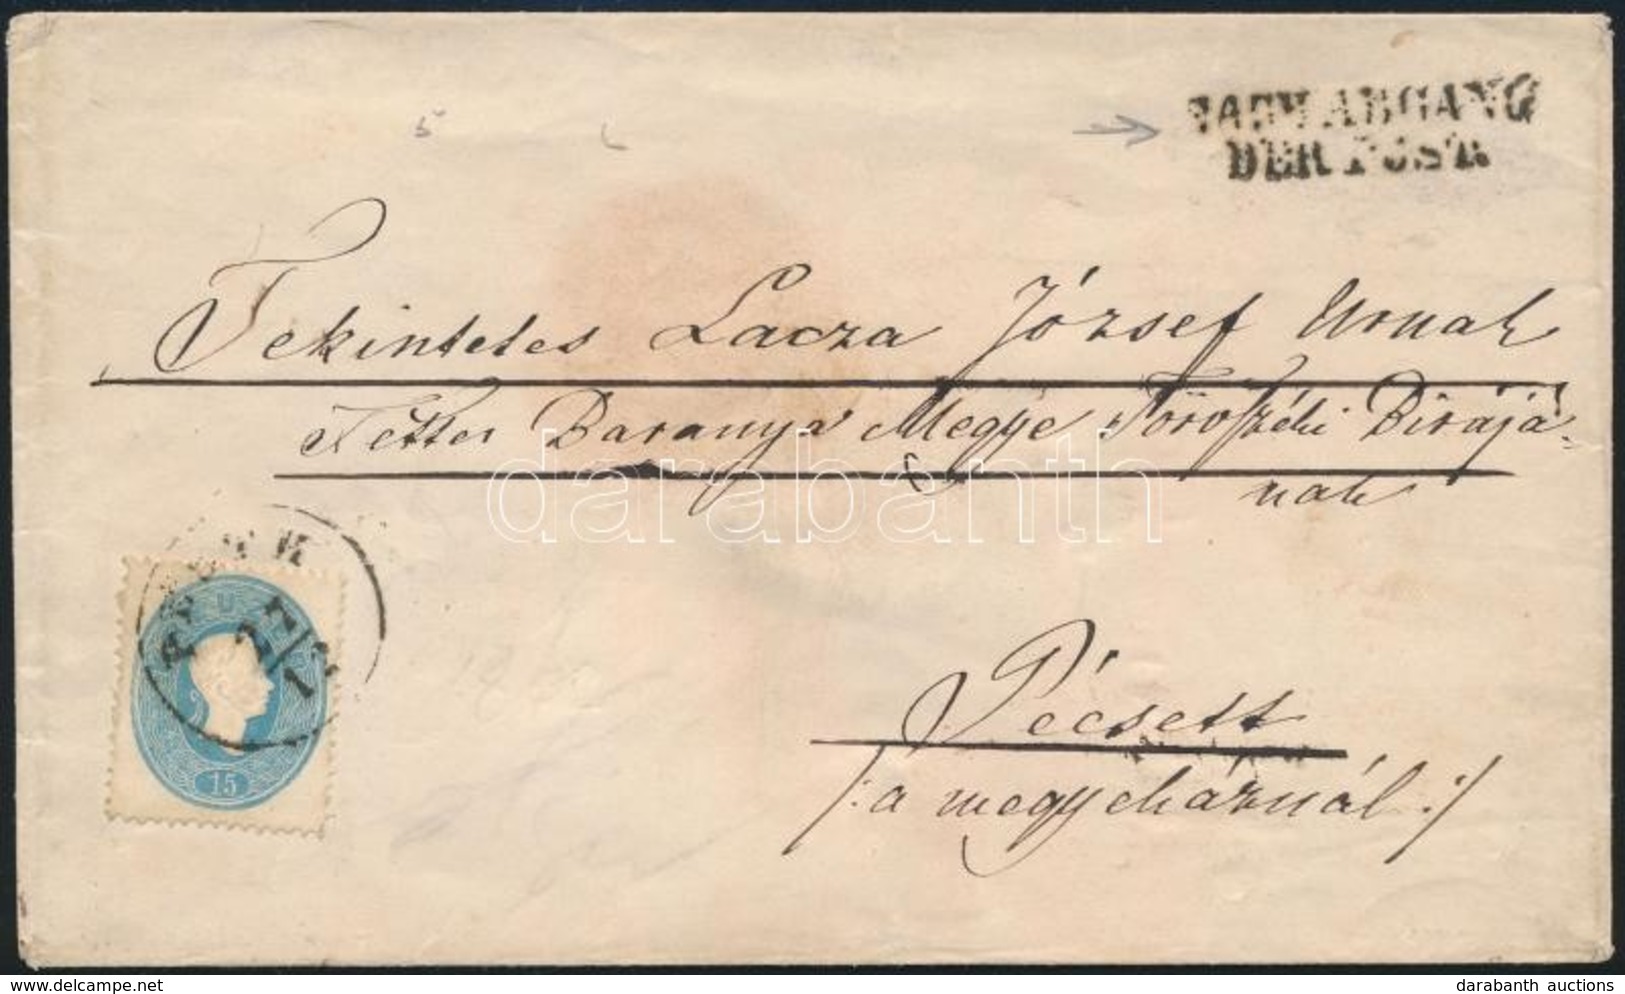 NACH ABGANG
DER POST.
5
Tekintetes Lacza József Urnak
Tettes Baranya Megye Törvszéki Birájá-
nak
darabanth
27/12
15
Pécsett
/: a megyeháznál :/
delcampe.net
darabanth auctions